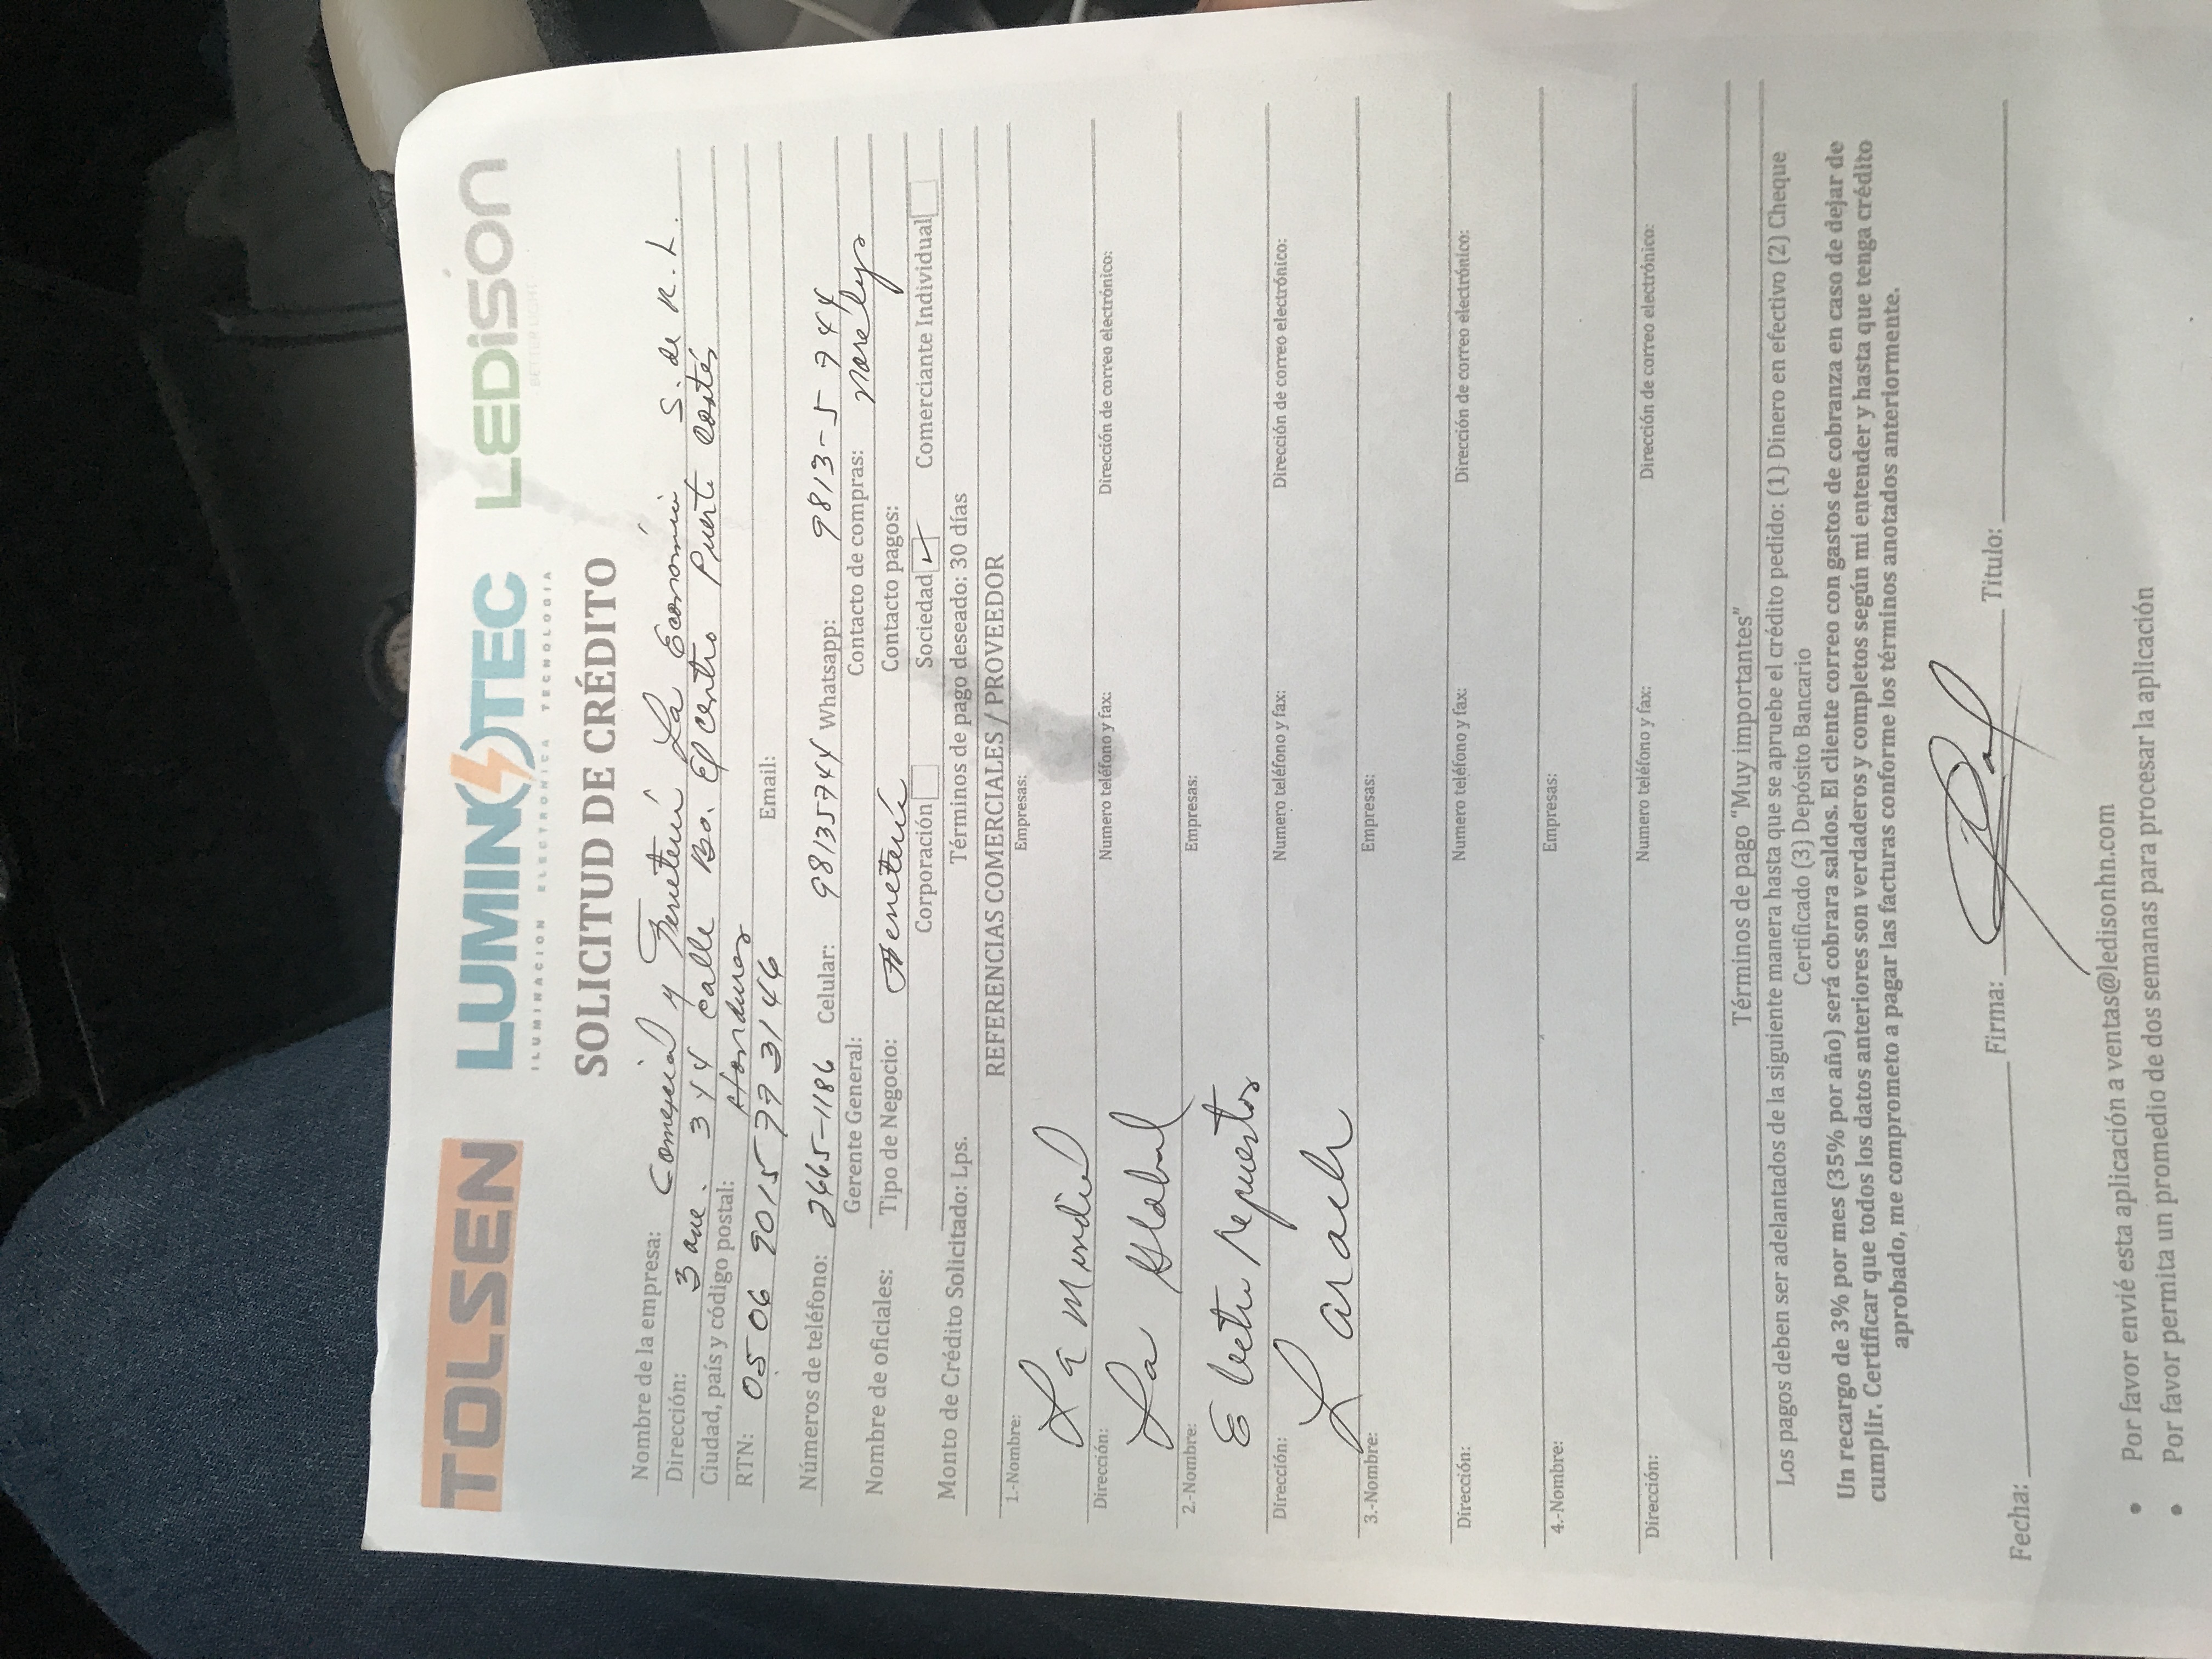 TOLSEN LUMINOTEC LEDiSON
ILUMINACION ELECTRONICA TECNOLOGIA BETTER LIGHT
SOLICITUD DE CRÉDITO
Nombre de la empresa: Comercial y Ferretería La Economía S. de R. L.
Dirección: 3 ave. 3 y 4 calle Bo. El centro Puerto Cortés
Ciudad, país y código postal: Honduras
RTN: 05 06 9015 773146 Email:
Números de teléfono: 2665-1186 Celular: 98135744 Whatsapp: 9813-5744
Gerente General: Contacto de compras: Norelys
Nombre de oficiales: Tipo de Negocio: Ferretería Contacto pagos:
Corporación Sociedad ✓ Comerciante Individual
Monto de Crédito Solicitado: Lps. Términos de pago deseado: 30 días
REFERENCIAS COMERCIALES / PROVEEDOR
1.-Nombre: Empresas:
La Mundial
Dirección: Numero teléfono y fax: Dirección de correo electrónico:
La Global
2.-Nombre: Empresas:
Electro Repuestos
Dirección: Numero teléfono y fax: Dirección de correo electrónico:
Larach
3.-Nombre: Empresas:
Dirección: Numero teléfono y fax: Dirección de correo electrónico:
4.-Nombre: Empresas:
Dirección: Numero teléfono y fax: Dirección de correo electrónico:
Términos de pago “Muy importantes”
Los pagos deben ser adelantados de la siguiente manera hasta que se apruebe el crédito pedido: (1) Dinero en efectivo (2) Cheque
Certificado (3) Depósito Bancario
Un recargo de 3% por mes (35% por año) será cobrara saldos. El cliente correo con gastos de cobranza en caso de dejar de
cumplir. Certificar que todos los datos anteriores son verdaderos y completos según mi entender y hasta que tenga crédito
aprobado, me comprometo a pagar las facturas conforme los términos anotados anteriormente.
Fecha: Firma: Titulo:
• Por favor envié esta aplicación a ventas@ledisonhn.com
• Por favor permita un promedio de dos semanas para procesar la aplicación